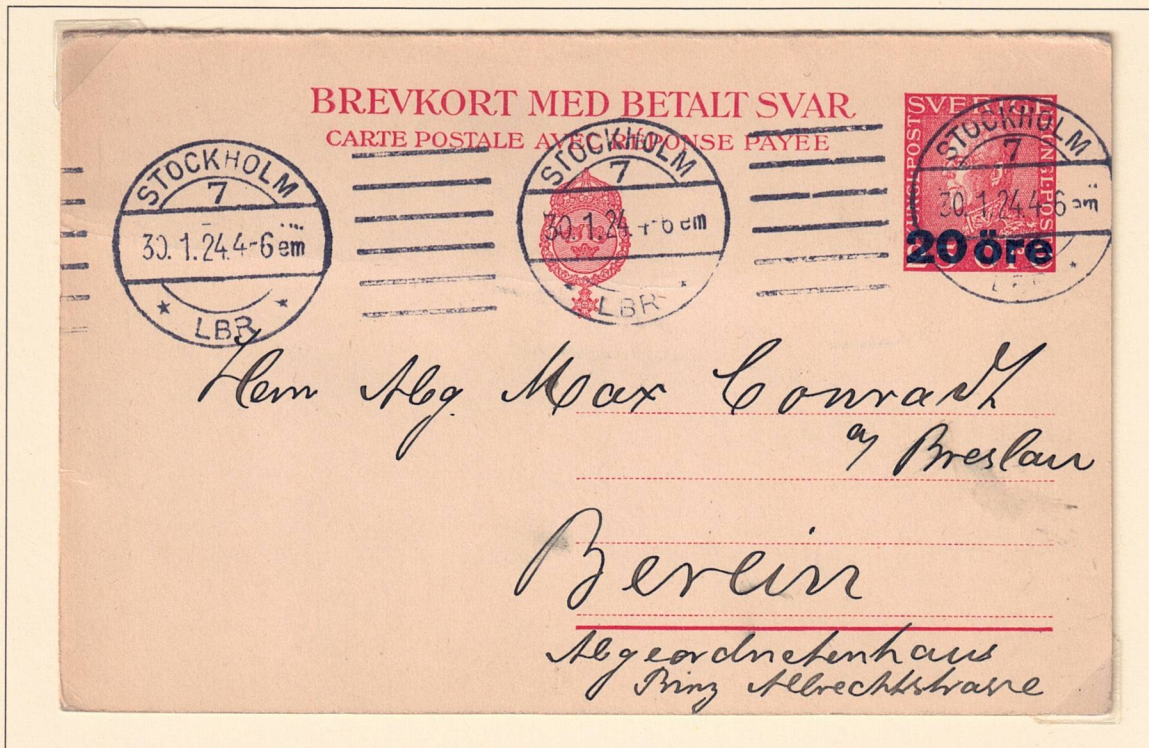 BREVKORT MED BETALT SVAR
CARTE POSTALE AVEC RÉPONSE PAYEE
SVERIGE
20 öre
STOCKHOLM
7
30.1.24.4-6 em
LBR
STOCKHOLM
7
30.1.24.4-6 em
LBR
STOCKHOLM
7
30.1.24.4-6 em
LBR
Herrn Abg Max Conradt
a/ Breslau
Berlin
Abgeordnetenhaus
Prinz Albrechtstrasse